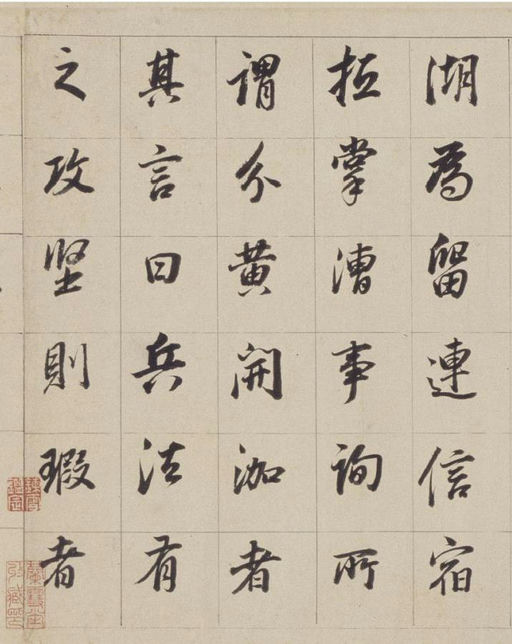 湖為留連信宿
抵掌漕事詢所
謂分黃開泇者
其言曰兵法有
之攻堅則瑕者